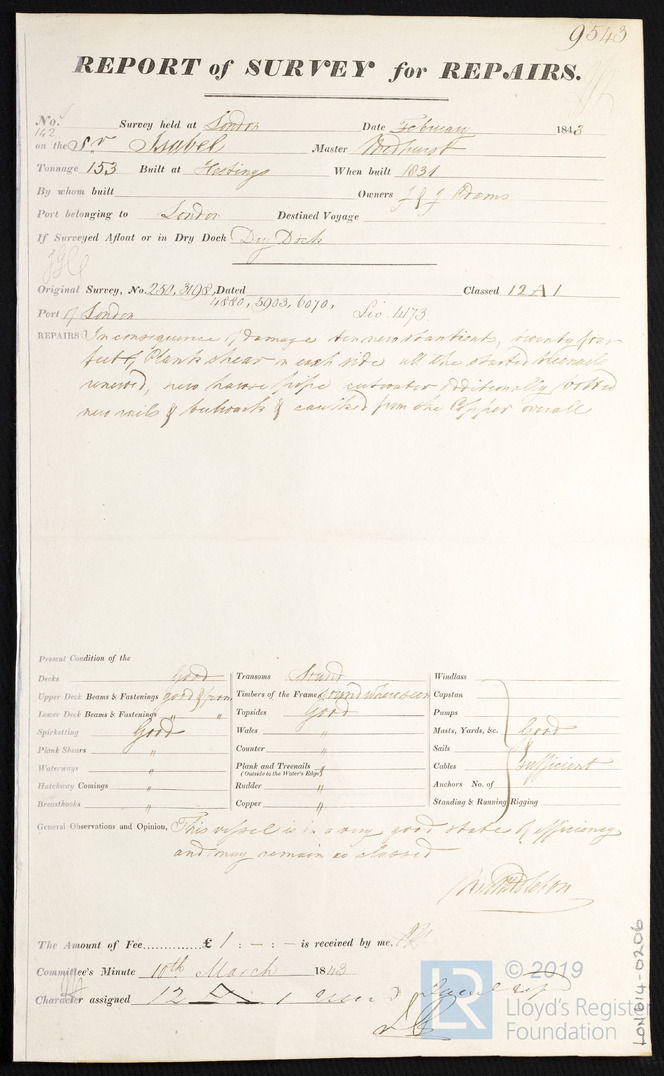 9543
REPORT of SURVEY for REPAIRS.
No. 142 Survey held at London Date February 1843
on the Sr Isabel Master Medhurst
Tonnage 153 Built at Hastings When built 1831
By whom built Owners J & J Adams
Port belonging to London Destined Voyage
If Surveyed Afloat or in Dry Dock Dry Dock
Original Survey, No. 250, 3198, Dated Classed 12 A 1
4880, 5903, 6070,
Port of London 473
REPAIRS In consequence of damage ten new stantients, twenty four
feet of Plank shear on each side all the started treenails
renewed, new hawse pipe cutwater additionally bolted
new rails & bulwarks & caulked from the Copper overall
Present Condition of the
Decks Good Transoms Sound Windlass
Upper Deck Beams & Fastenings good & firm Timbers of the Frame sound where seen Capstan
Lower Deck Beams & Fastenings " " Topsides Good Pumps
Spirketting Good Wales " Masts, Yards, &c. Good
Plank Shears " Counter " Sails &
Waterways " Plank and Treenails " Cables Sufficient
(Outside to the Water's Edge)
Hatchway Comings " Rudder " Anchors No. of
Breasthooks " Copper " Standing & Running Rigging
General Observations and Opinion, This vessel is in a very good state of efficiency
and may remain as classed
The Amount of Fee............ £ 1 : – : – is received by me,
Committee's Minute 10th March 1843
Character assigned 12 A 1
© 2019
LR Lloyd's Register
Foundation
LON614-0206